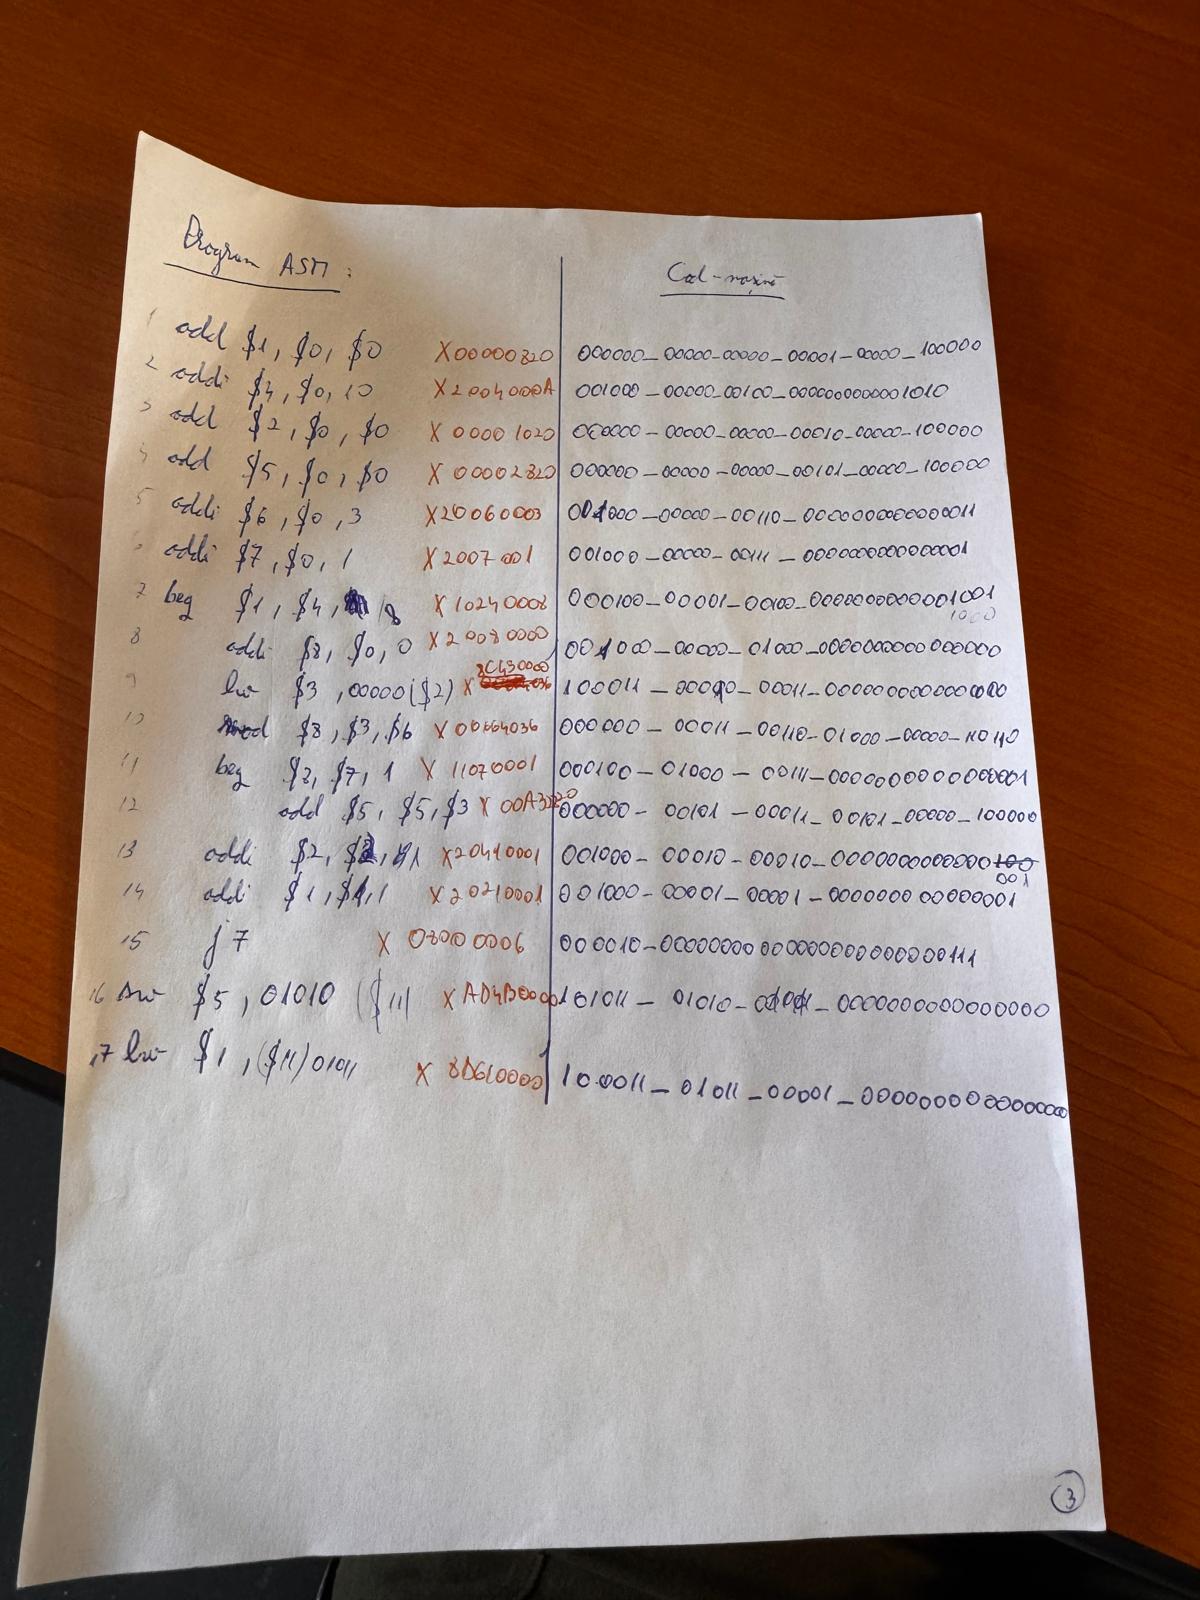 Program ASM :
Cod-mașină
1 add $1, $0, $0 X00000820 000000_00000_00000_00001_00000_100000
2 addi $4, $0, 10 X2004000A 001000_00000_00100_0000000000001010
3 add $2, $0, $0 X00001020 000000_00000_00000_00010_00000_100000
4 add $5, $0, $0 X00002820 000000_00000_00000_00101_00000_100000
5 addi $6, $0, 3 X20060003 001000_00000_00110_0000000000000011
6 addi $7, $0, 1 X2007001 001000_00000_00111_0000000000000001
7 beq $1, $4, 8 X10240008 000100_00001_00100_0000000000001001
1000
8 addi $8, $0, 0 X20080000 001000_00000_01000_0000000000000000
9 lw $3, 00000($2) X 8C430000 100011_00010_00011_0000000000000000
10 mod $8, $3, $6 X00664036 000000_00011_00110_01000_00000_110110
11 beq $8, $7, 1 X11070001 000100_01000_00111_0000000000000001
12 add $5, $5, $3 X00A32820 000000_00101_00011_00101_00000_100000
13 addi $2, $2, 1 X20410001 001000_00010_00010_0000000000000100
001
14 addi $1, $1, 1 X20210001 001000_00001_00001_0000000000000001
15 j 7 X08000006 000010_00000000000000000000000111
16 sw $5, 01010 ($11) XAD4B0000 101011_01010_01011_0000000000000000
17 lw $1, ($11) 01011 X8D610000 100011_01011_00001_0000000000000000
3